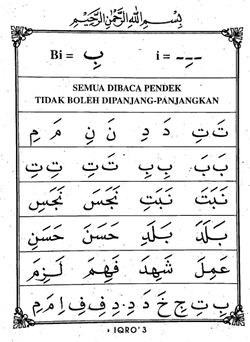 بِسْمِ اللّٰهِ الرَّحْمٰنِ الرَّحِيْمِ
Bi = بِ i = ـِ
SEMUA DIBACA PENDEK
TIDAK BOLEH DIPANJANG-PANJANGKAN
تَ تِ دَ دِ نَ نِ مَ مِ
بَ بَ بِ بِ تَ تِ تِ تِ
نَبَتَ نَبَتِ نَجَسَ نَجَسِ
بَلَدَ بَلَدِ حَسَنَ حَسَنِ
عَمِلَ شَهِدَ فَهِمَ لَزِمَ
• IQRO' 3